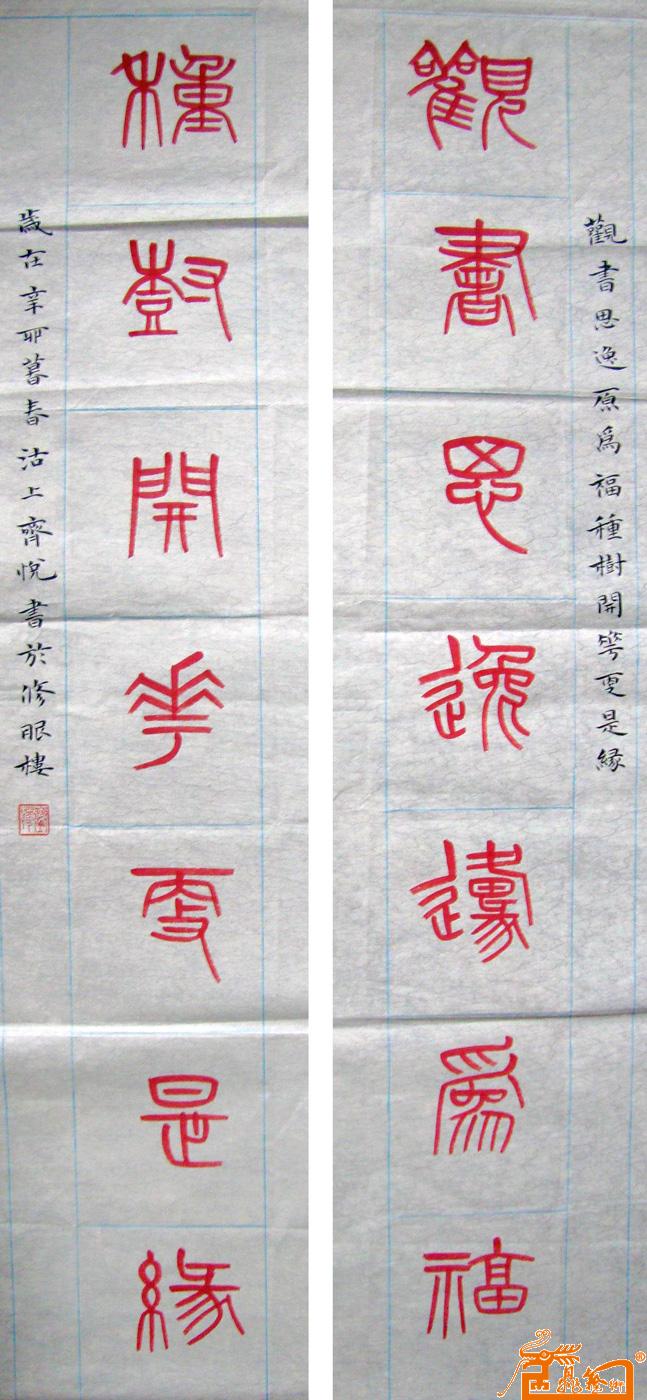 觀書思逸邍爲福
觀書思逸原爲福種樹開華更是緣
種尌開華更是緣
歲在辛卯暮春沽上齊悅書於修眼樓